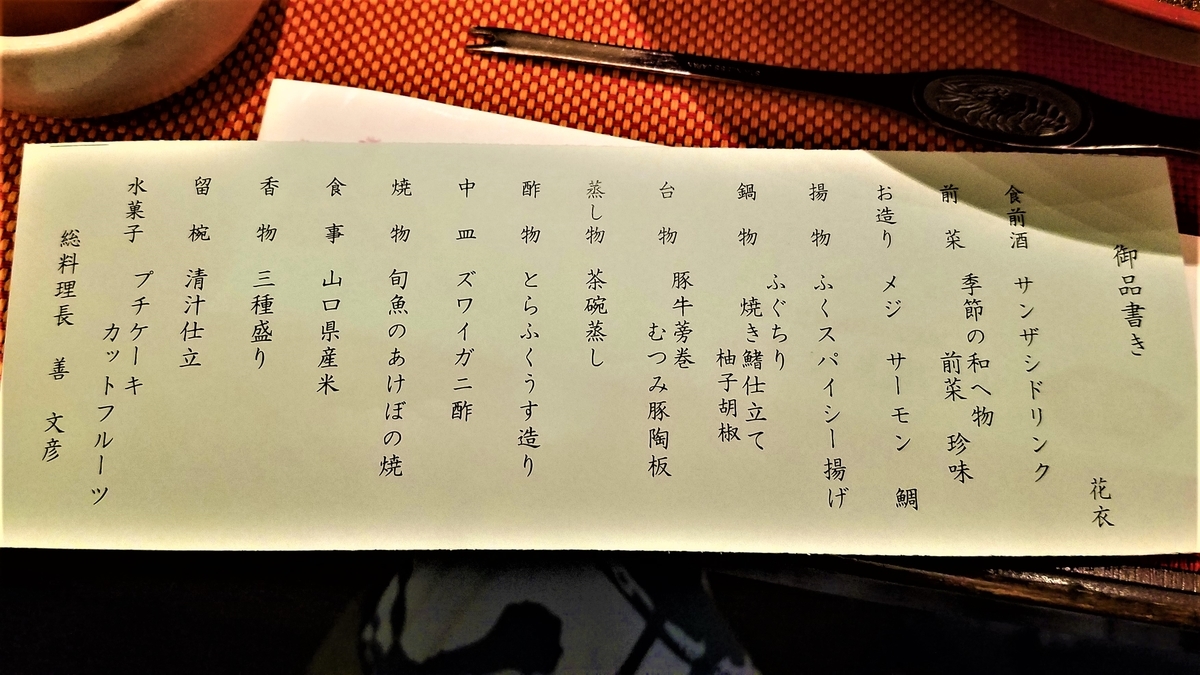 御品書き
花衣
食前酒 サンザシドリンク
前菜 季節の和へ物
前菜 珍味
お造り メジ サーモン 鯛
揚物 ふくスパイシー揚げ
鍋物 ふぐちり
焼き鰭仕立て
柚子胡椒
台物 豚牛蒡巻
むつみ豚陶板
蒸し物 茶碗蒸し
酢物 とらふくうす造り
中皿 ズワイガニ酢
焼物 旬魚のあけぼの焼
食事 山口県産米
香物 三種盛り
留椀 清汁仕立
水菓子 プチケーキ
カットフルーツ
総料理長 善 文彦